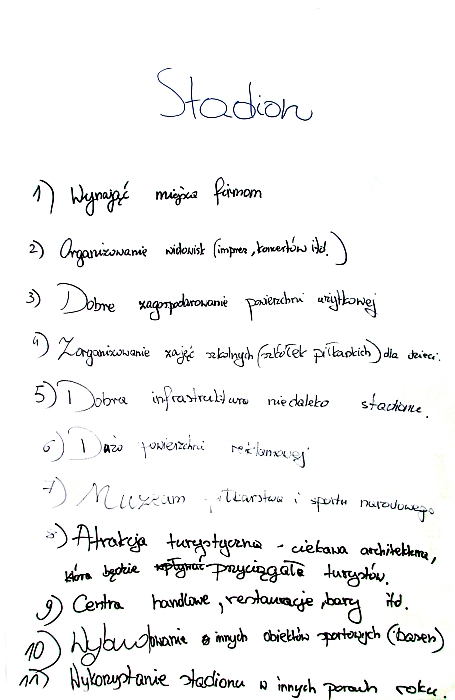 Stadion
1) Wynająć miejsca firmom
2) Organizowanie widowisk (imprez, koncertów itd.)
3) Dobre zagospodarowanie powierzchni użytkowej
4) Zorganizowanie zajęć szkolnych (szkółek piłkarskich) dla dzieci.
5) Dobra infrastruktura niedaleko stadionu.
6) Dużo powierzchni reklamowej
7) Muzeum piłkarstwa i sportu narodowego
8) Atrakcja turystyczna - ciekawa architektura,
która będzie wpłynąć przyciągała turystów.
9) Centra handlowe, restauracje, bary itd.
10) Wybudowanie innych obiektów sportowych (basen)
11) Wykorzystanie stadionu w innych porach roku.